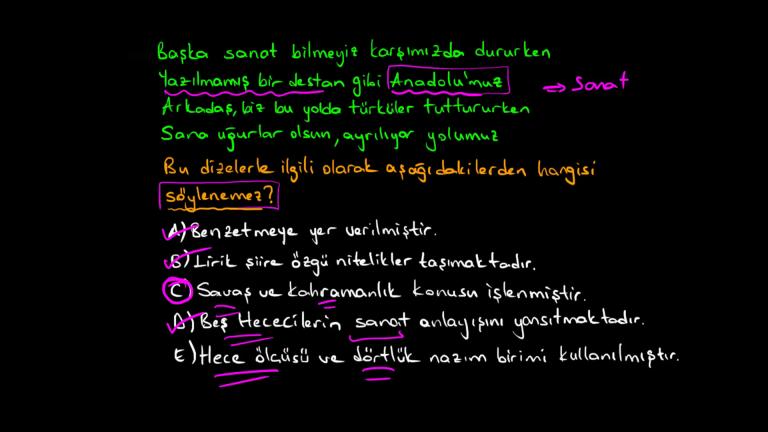 Başka sanat bilmeyiz karşımızda dururken
Yazılmamış bir destan gibi Anadolu'muz ⇒ Sanat
Arkadaş, biz bu yolda türküler tuttururken
Sana uğurlar olsun, ayrılıyor yolumuz
Bu dizelerle ilgili olarak aşağıdakilerden hangisi
söylenemez?
A) Benzetmeye yer verilmiştir.
B) Lirik şiire özgü nitelikler taşımaktadır.
C) Savaş ve kahramanlık konusu işlenmiştir.
D) Beş Hececilerin sanat anlayışını yansıtmaktadır.
E) Hece ölçüsü ve dörtlük nazım birimi kullanılmıştır.